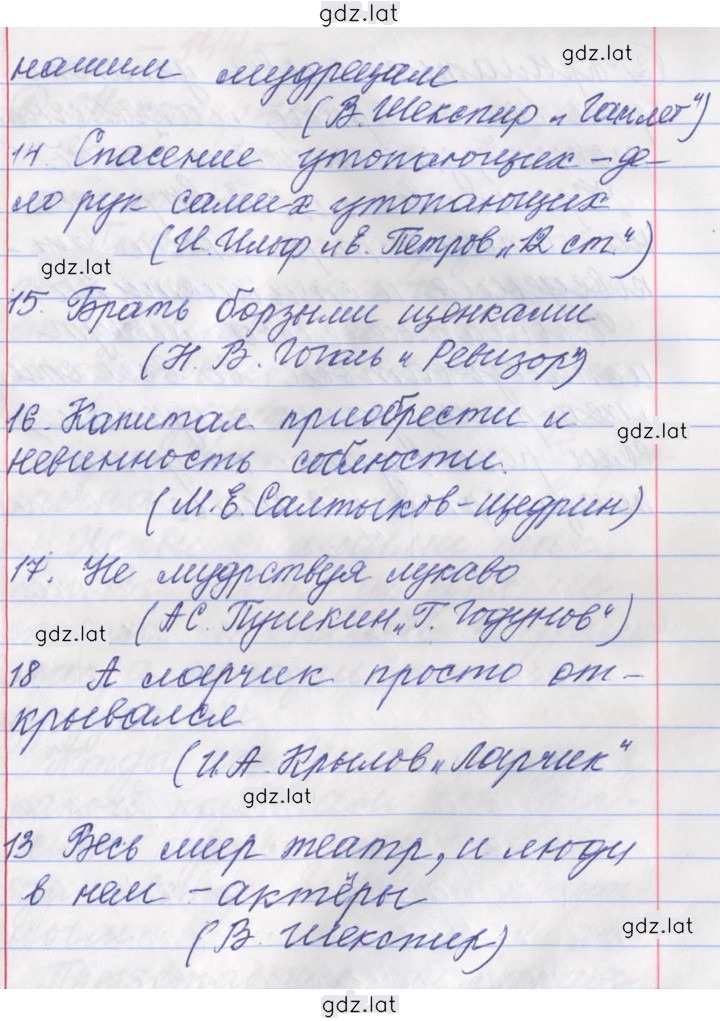 gdz.lat
gdz.lat
нашим мудрецам
(В. Шекспир „Гамлет")
14. Спасение утопающих - де-
ло рук самих утопающих
(И. Ильф и Е. Петров „12 ст.")
gdz.lat
15. Брать борзыми щенками
(Н. В. Гоголь „Ревизор")
16. Капитал приобрести и
gdz.lat
невинность соблюсти.
(М. Е. Салтыков-Щедрин)
17. Не мудрствуя лукаво
(А С. Пушкин „Г. Годунов")
gdz.lat
18. А ларчик просто от-
крывался
(И. А. Крылов „Ларчик"
gdz.lat
13 Весь мир театр, и люди
в нем - актёры
(В. Шекспир)
gdz.lat
gdz.lat